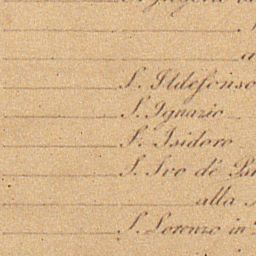 S. Ildefonso
S. Ignazio
S. Isidoro
S. Ivo de
alla
S. Lorenzo in